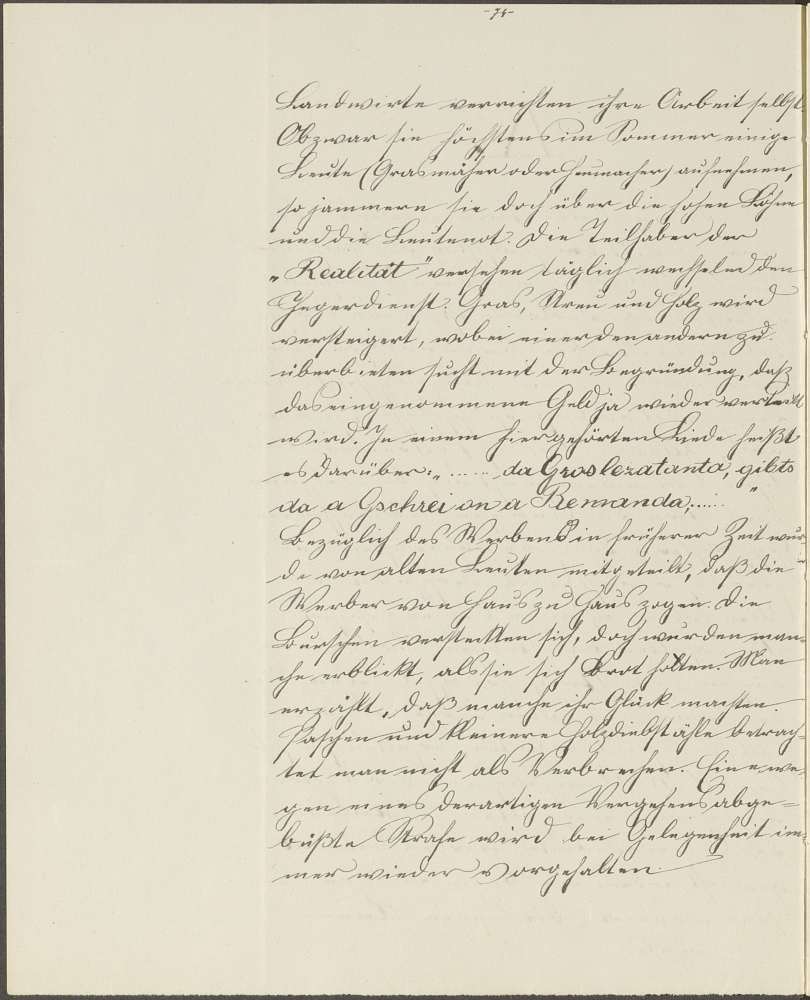 -74-
Landwirte verrichten ihre Arbeit selbst.
Obzwar sie höchstens im Sommer einige
Leute (Grasmäher oder Heumacher) aufnehmen,
so jammern sie doch über die hohen Löhne
und die Leutenot. Die Teilhaber der
„Realität" versehen täglich wechselnd den
Hegerdienst. Gras, Streu und Holz wird
versteigert, wobei einer den andern zu
überbieten sucht mit der Begründung, daß
das eingenommene Geld ja wieder verteilt
wird. In einem hier gehörten Liede heißt
es darüber: „...... da Groslezatanta, gibts
da a Gschrei on a Remanda,......"
Bezüglich des Werbens in früherer Zeit wur-
de von alten Leuten mitgeteilt, daß die
Werber von Haus zu Haus zogen. Die
Burschen versteckten sich, doch wurden man-
che erblickt, als sie sich Brot holten. Man
erzählt, daß manche ihr Glück machten.
Paschen und kleinere Holzdiebstähle betrach-
tet man nicht als Verbrechen. Eine we-
gen eines derartigen Vergehens abge-
büßte Strafe wird bei Gelegenheit im-
mer wieder vorgehalten.